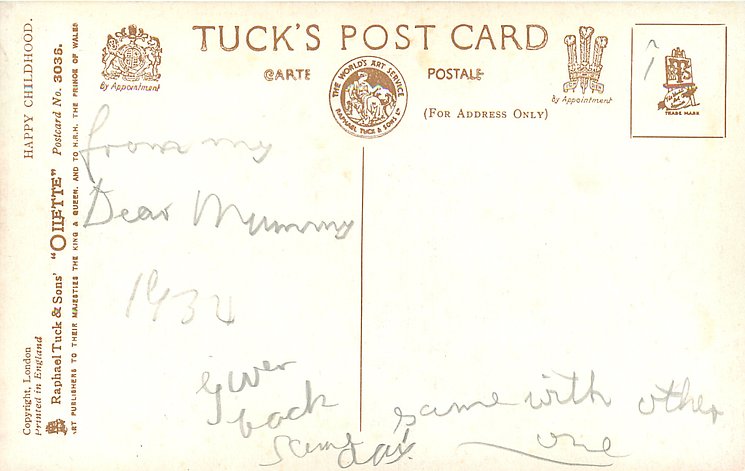 TUCK'S POST CARD
CARTE POSTALE
(FOR ADDRESS ONLY)
By Appointment
THE WORLD'S ART SERVICE
RAPHAEL TUCK & SONS LD
By Appointment
TRADE MARK
HAPPY CHILDHOOD.
Copyright, London
Printed in England
Raphael Tuck & Sons' "OILETTE" Postcard No. 3036.
ART PUBLISHERS TO THEIR MAJESTIES THE KING & QUEEN, AND TO H.R.H. THE PRINCE OF WALES
from my
Dear Mummy
193
given
back
same day.
same with other
one